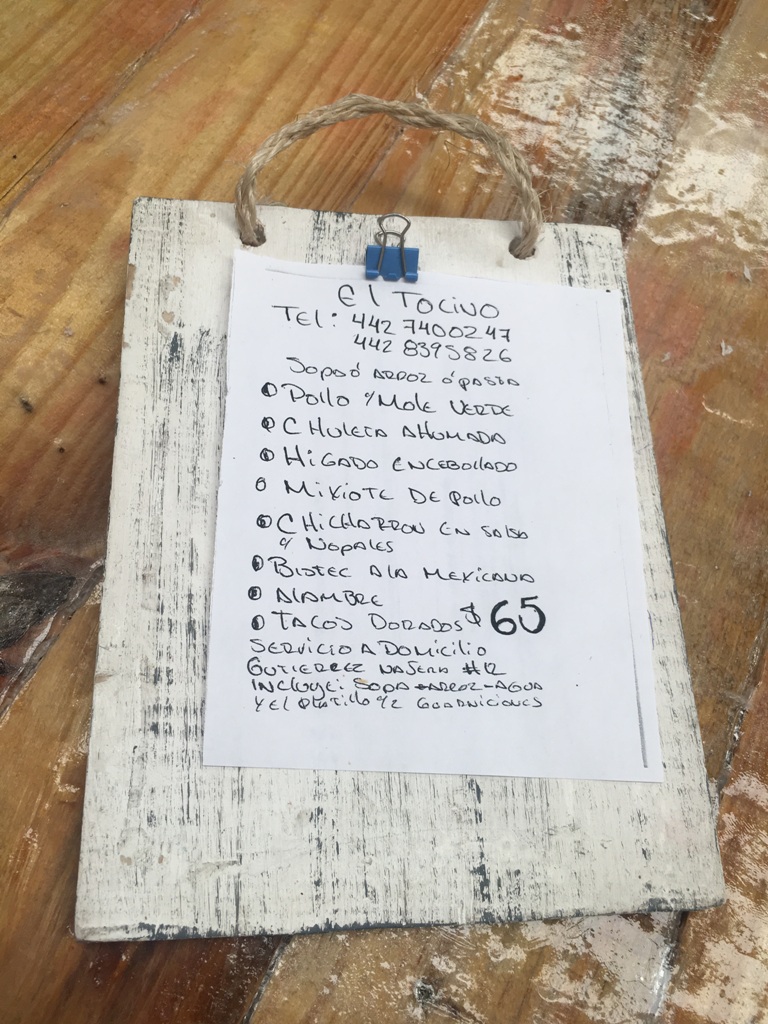 El TOCINO
TEl: 442 7400247
442 8395826
Sopa ó ARROZ ó pASTA
Pollo c/Mole VERDE
CHULETA AHUMADA
HiGADO ENCEBOllADO
MiXiOTE DE Pollo
CHiCHARRON EN SAlSA
c/ NOPALES
BISTEC A lA MEXICANA
AlAMBRE
TACOS DORADOS $65
SERVICIO A DOMICILIO
GUTIERREZ NAJERA #12
INCLUYE: SOPA-ARROZ-AGUA
Y El PlATillO c/2 GUARNICIONES